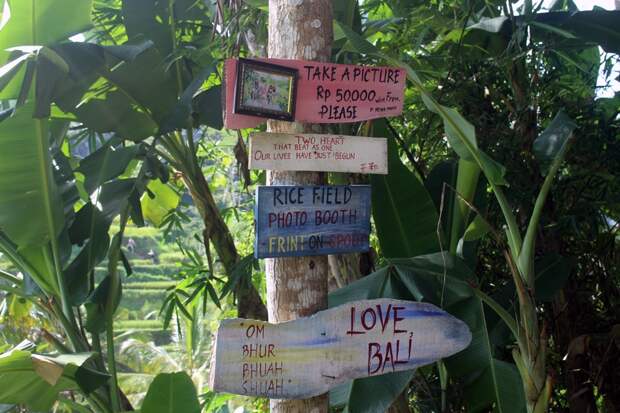 TAKE A PICTURE
Rp 50000 with Frame
PLEASE
TWO HEART
THAT BEAT AS ONE
OUR LIVES HAVE JUST BEGUN
RICE FIELD
PHOTO BOOTH
FRINT ON SPORT
"OM
BHUR
BHUAH
SHUAH"
LOVE,
BALI